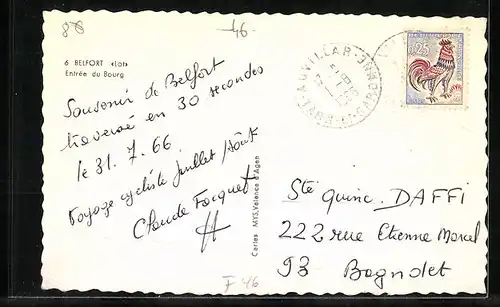 88
46
6 BELFORT (Lot)
Entrée du Bourg
Souvenir de Belfort
traversé en 30 secondes
le 31.7.66
Voyage cycliste Juillet/Août
Claude Facquet
Cartes MYS, Valence d'Agen
AUVILLAR
TARN-ET-GARONNE
0,25
Sté Quinc. DAFFI
222 rue Etienne Marcel
93 Bagnolet
F 46